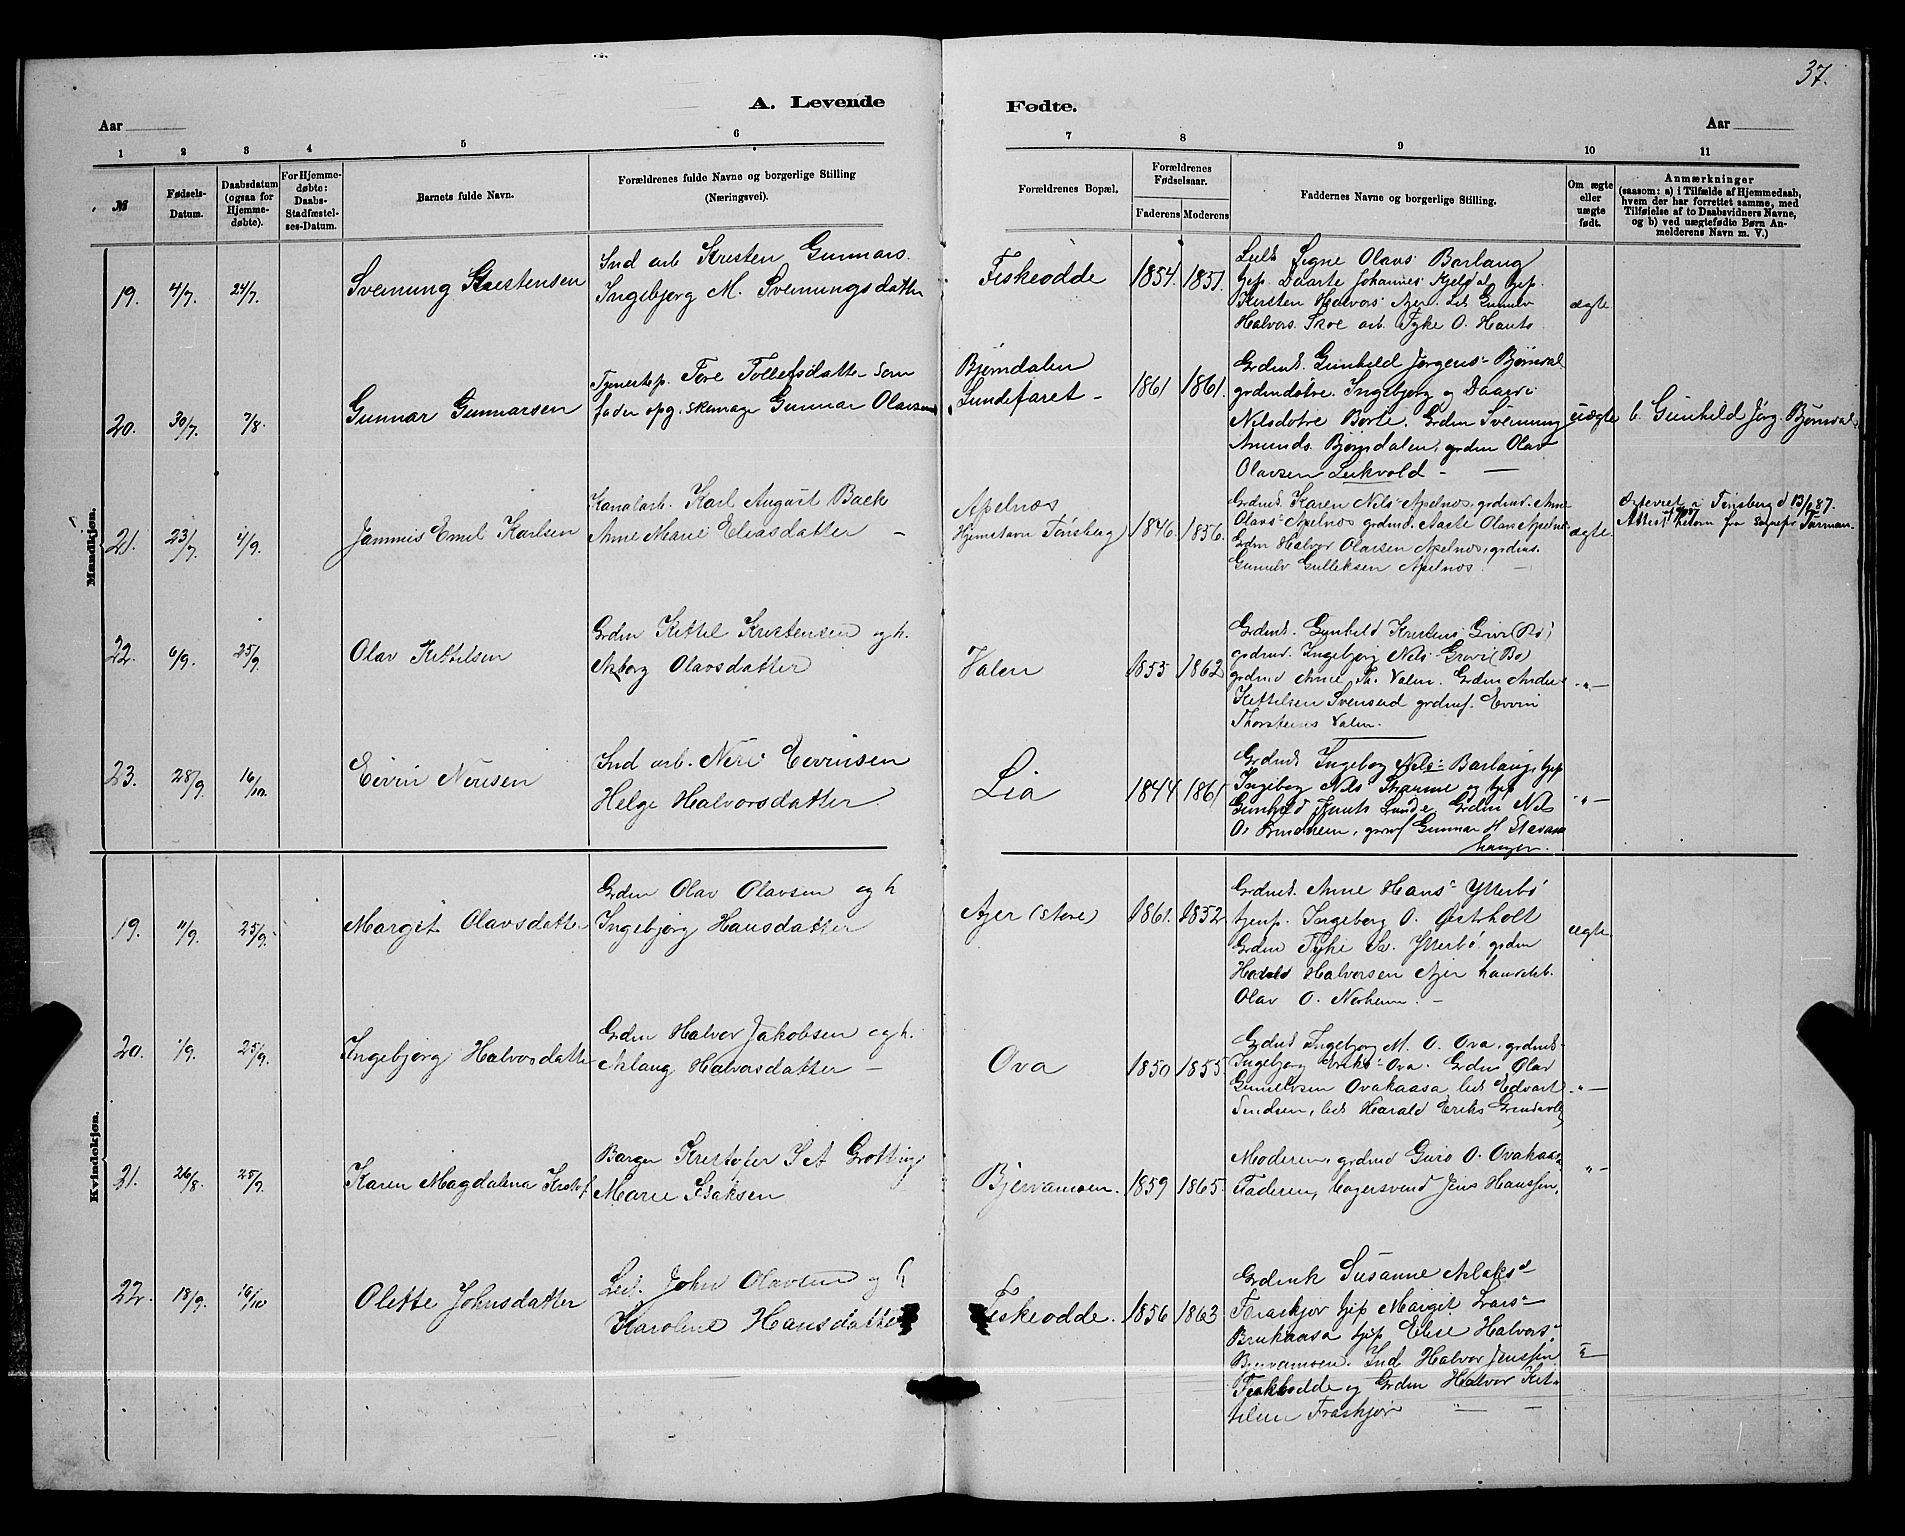 37.
A. Levende
Fødte.
Aar
Aar
1 2 3 4 5 6 7 8 9 10 11
№
Fødsels-
Datum.
Daabsdatum
(ogsaa for
Hjemme-
døbte).
For Hjemme-
døbte:
Daabs-
Stadfæstel-
ses-Datum.
Barnets fulde Navn.
Forældrenes fulde Navne og borgerlige Stilling
(Næringsvei).
Forældrenes Bopæl.
Forældrenes
Fødselsaar.
Faderens Moderens
Faddernes Navne og borgerlige Stilling.
Om ægte
eller
uægte
født.
Anmærkninger
(saasom: a) i Tilfælde af Hjemmedaab,
hvem der har forrettet samme, med
Tilføielse af to Daabsvidners Navne,
og b) ved uægtefødte Børn An-
melderens Navn m. V.)
Mandkjøn.
19. 4/7. 24/7. Svenung Krestensen
Ind arb Kresten Gunnars.
Ingebjorg M. Svenungsdatter
Fiskeodde 1854. 1851.
Signe Olavs Barlaug
Daarte Johannes
Kersten Halvors Ajer.
Halvors. Skoe arb. Tyke O. Hauts
ægte
20. 30/7. 7/8. Gunnar Gunnarsen
Tjenestep. Tore Tollefsdatter som
fader opg. skomager Gunnar Olavsen
Bjørndalen
Lundefaret - 1861 1861.
Grdmd. Gunhild Jørgens- Bjørndal
Ingebjorg og Daarte
Nilsdøtre Borte. Grdm Svenung
Amunds. Bjørndalen, grdm Olav
Olavsen Leikvold -
uægte
b. Gunhild Jörg. Bjørndal.
21. 23/7. 4/9. Jammis Emil Karlsen
Kanalarb. Karl August Back
Anne Marie Eliasdatter -
Apelnæs
Hjemstavn Tönsberg 1846. 1856.
Grdmd. Karen Nils- Apelnos, grdmd. Anne
Olavs- Apelnos grdmd. Aaste Olav Apelnos
Grdm Halvor Olavsen Apelnos, grdms.
Gunulv Gulleksen Apelnos.
ægte.
i Tönsberg d 13/6 87.
Attest herom fra Sognepr
22. 6/9. 25/9. Olav Kittilsen
Grdm Kittil Kristensen og h.
Asborg Olavsdatter
Valen 1853 1862
Grdmd. Gunhild Kristens Grivi (Bö)
grdmd. Ingebjorg Nils- Gravi (Bo)
grdmd Anne Th. Valen. Grdm Anders
Kittilsen Svensud grdmf. Eivin
Thorsteins Valen.
" -
23. 28/9. 16/10. Eivin Nerisen
Ind arb. Neri Eivinsen
Helge Halvorsdatter.
Lia 1844 1861
Grdmd Ingebog Nels- Barlaug, tjep
Ingebog Nils Straume og tjep
Gunhild Knuts Lunde Grdm Nils
O. Lindheim, grdmf Gunnar H Stavan
hauger.
" -
Kvindekjøn.
19. 11/9. 25/9. Margit Olavsdatter
Grdm Olav Olavsen og h
Ingebjorg Hansdatter
Ajer (store) 1861. 1852.
Grdmd. Anne Hans- Ytterbö
tjenp. Ingeborg O. Østrholt
Grdm Tyke Sv. Ytterbö grdm
Harald Halvorsen Ajer
Olav O. Norheim. -
ægte.
20. 1/9. 25/9. Ingebjorg Halvorsdatter
Grdm Halvor Jakobsen og h.
Aslaug Halvorsdatter -
Ova 1850 1855
Grdmd Ingebjorg M. O. Ova. grdmd-
Ingebjorg Eriks- Ova. Grdm Olav
Gunulvsen Ovakaasa, leil Edvart
leil Harald Eriks
" -
21. 26/8. 25/9. Karen Magdalena Kristof
Kristofer S A Grotting
Marie Isaksen
Bjervamoen. 1859 1865.
Moderen, grdmd Guro O. Ovakaasa
Faderen, bagersvend Jens Hanssen.
" -
22. 18/9. 16/10 Olette Johnsdatter
Leil. John Olavsen og h
Karoline Hansdatter
Fiskeodde. 1856 1863
Grdmk Susanne Aslaks-
Fraskjor tjep Margit Lars-
Brukaasa tjep Elise Halvors-
Bjervamoen. Ind Halvor Jenssen
Feskeodde og Grdm Halvor Ket-
tilsen Fraskjør
" -